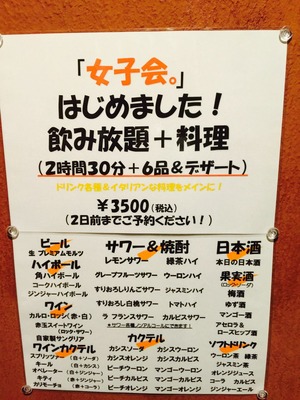 「女子会。」
はじめました！
飲み放題＋料理
(2時間30分＋6品＆デザート)
ドリンク各種＆イタリアンな料理をメインに！
￥3500(税込)
(2日前までご予約ください！)
ビール
生 プレミアムモルツ
ハイボール
角ハイボール
コークハイボール
ジンジャーハイボール
ワイン
カルロ・ロッシ(赤・白)
赤玉スイートワイン
(ロック・サワー)
自家製サングリア
ワインカクテル
スプリッツァー (白＋ソーダ)
キール (白＋カシス)
オペレーター (白＋ジンジャー)
キティ (赤＋ジンジャー)
カリモーチョ (赤＋コーラ)
サワー＆焼酎
レモンサワー 緑茶ハイ
グレープフルーツサワー ウーロンハイ
すりおろしりんごサワー ジャスミンハイ
すりおろし白桃サワー トマトハイ
ラ フランスサワー カルピスサワー
★サワー各種ノンアルコールにできます！
カクテル
カシスソーダ カシスウーロン
カシスオレンジ カシスカルピス
ピーチウーロン マンゴーウーロン
ピーチオレンジ マンゴーオレンジ
ピーチカルピス マンゴーカルピス
ジンジャー ジントニック
日本酒
本日の日本酒
果実酒
(ロック・ソーダ)
梅酒
ゆず酒
マンゴー酒
アセロラ＆
ローズヒップ酒
ソフトドリンク
ウーロン茶 緑茶
ジャスミン茶
オレンジジュース
コーラ カルピス
ジンジャーエール